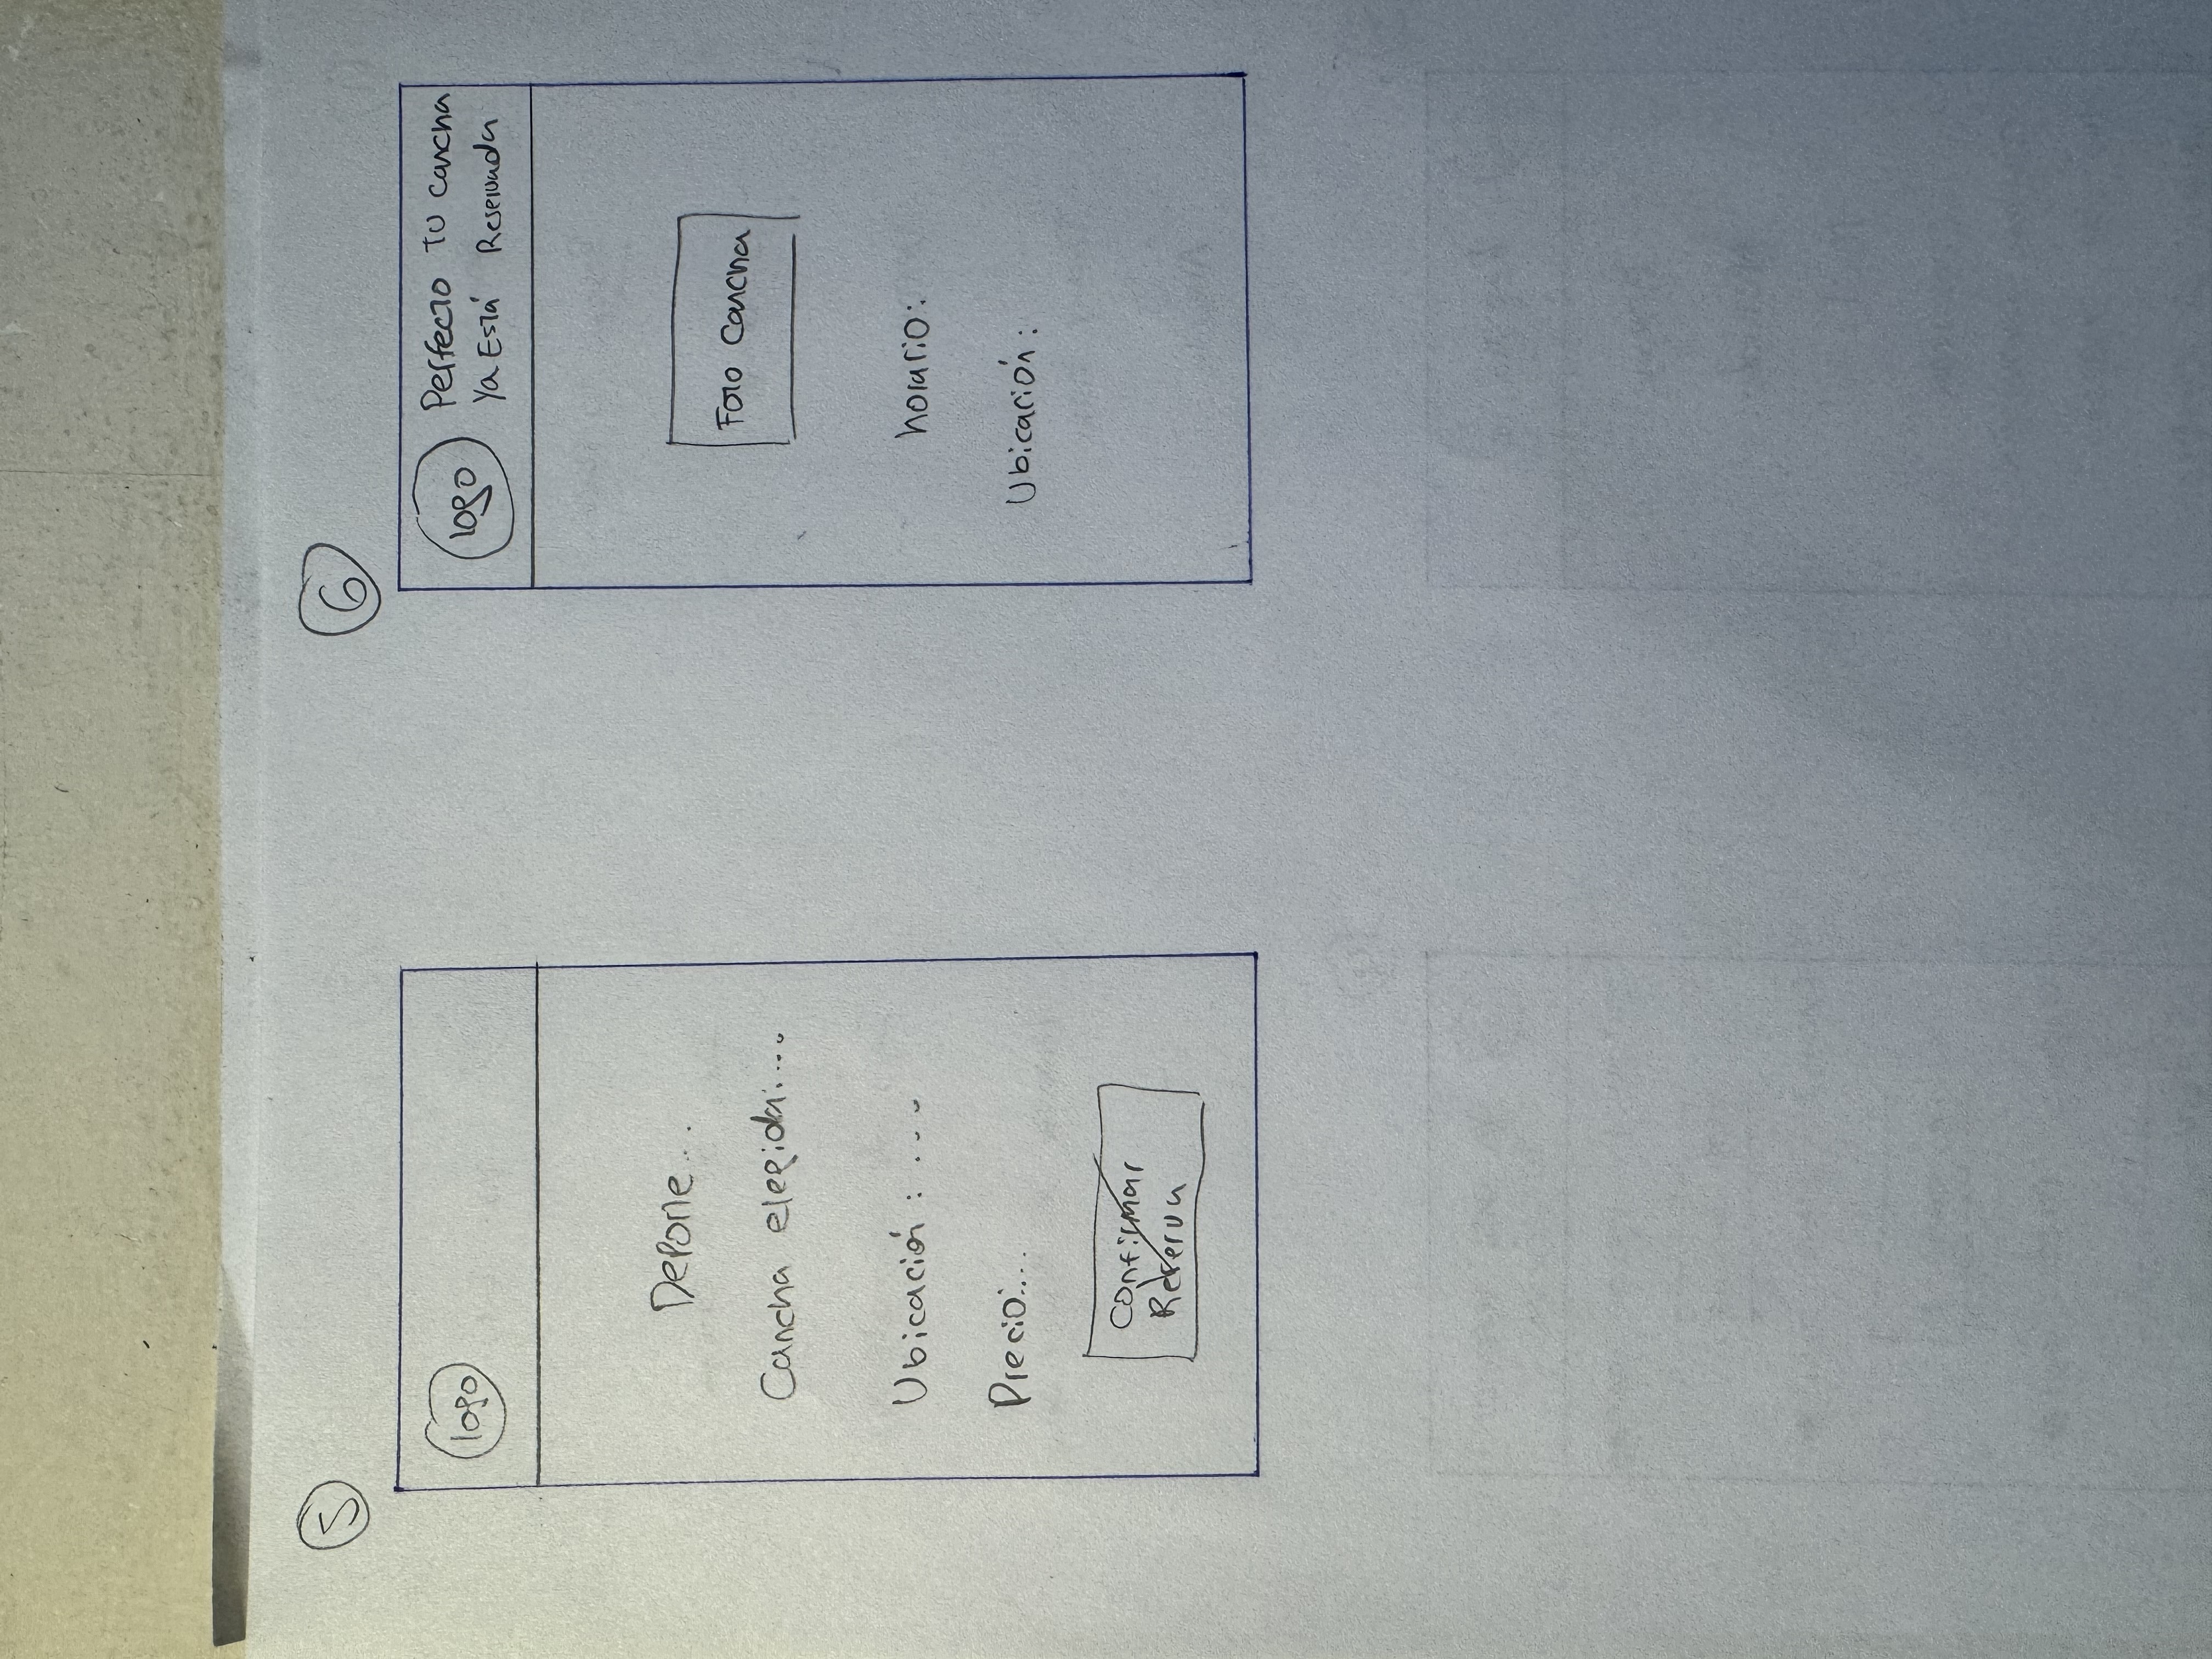 5
logo
Deporte...
Cancha elegida:...
Ubicación: ...
Precio:...
Confirmar
Reserva
6
logo
Perfecto Tu cancha
Ya Está Reservada
Foto Cancha
horario:
Ubicación: